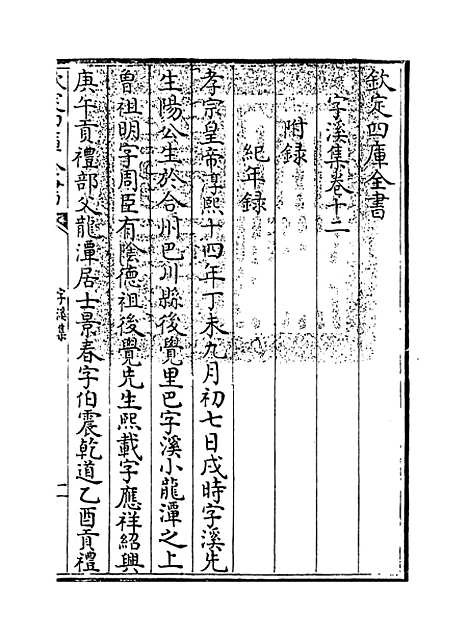 欽定四庫全書
字溪集卷十二
附録
紀年録
孝宗皇帝淳熙十四年丁未九月初七日戌時字溪先
生陽公生於合州巴川縣後覺里巴字溪小龍潭之上
曾祖明字周臣有陰德祖後覺先生熙載字應祥紹興
庚午貢禮部父龍潭居士景春字伯震乾道乙酉貢禮
欽定四庫全書
字溪集
一